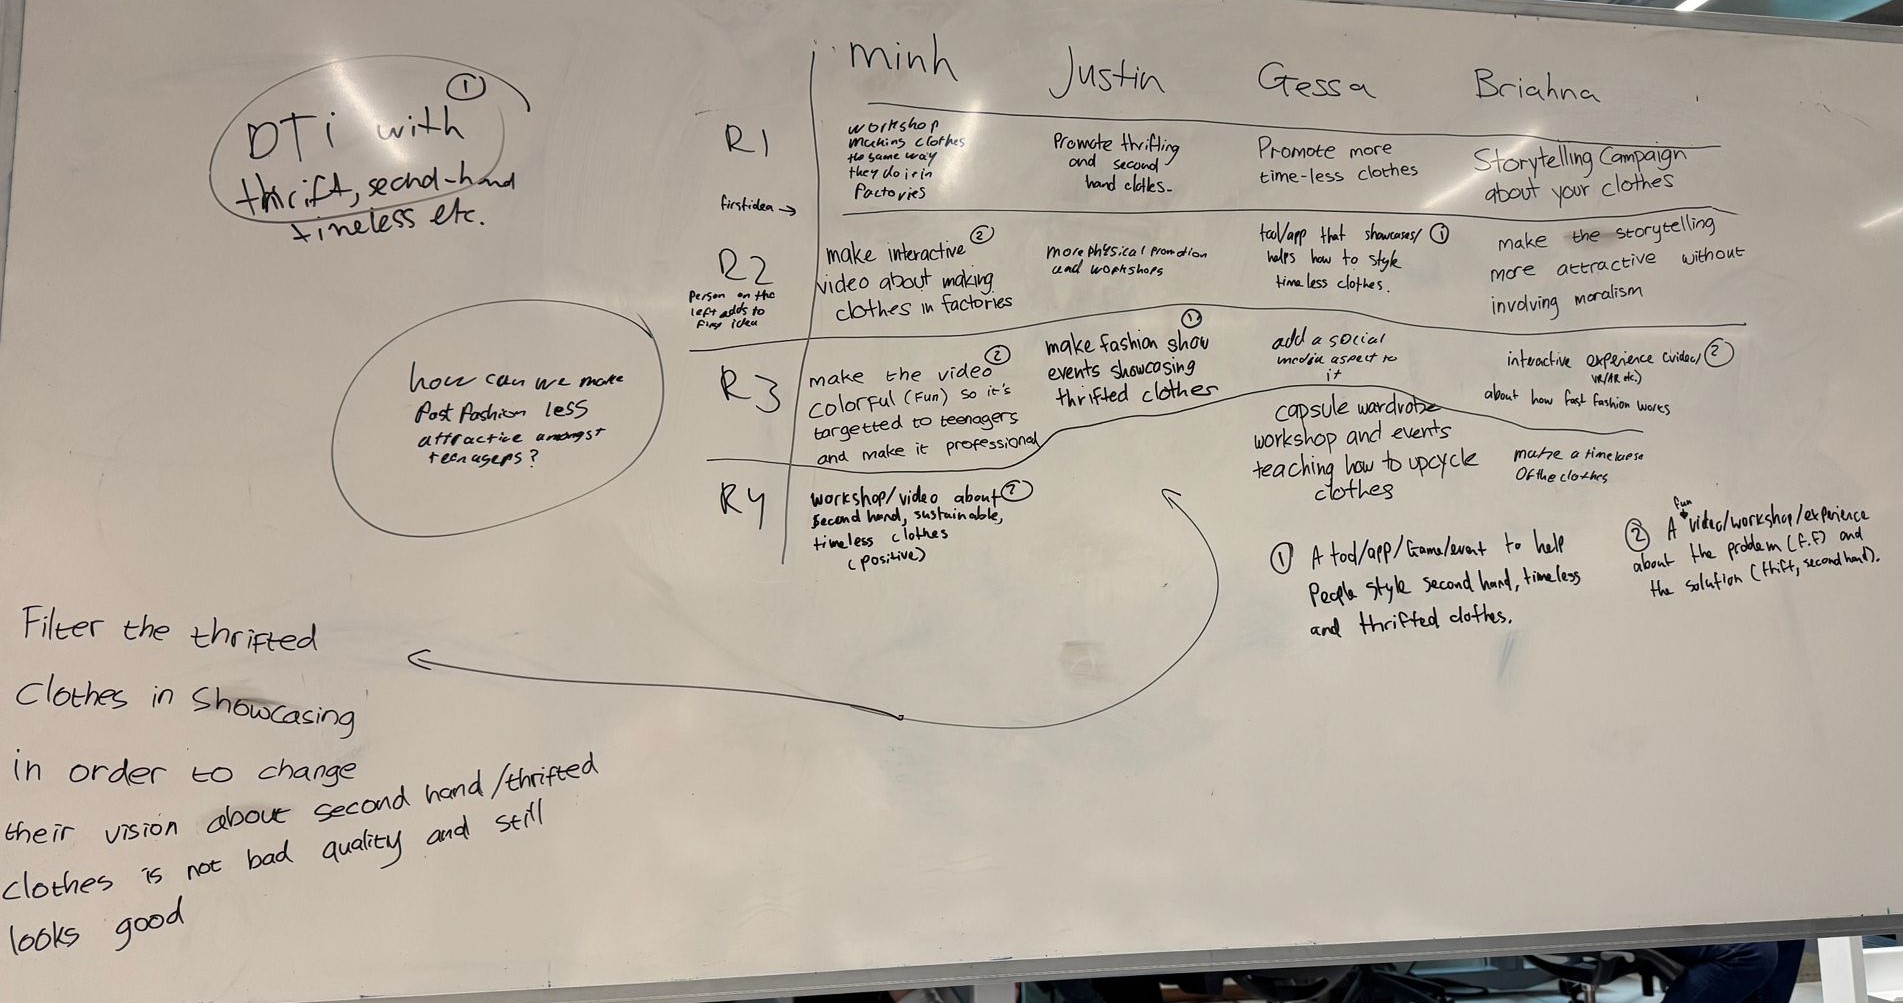 DTi with
①
thrift, second-hand
timeless etc.
how can we make
fast fashion less
attractive amongst
teenagers?
minh
Justin
Gessa
Briahna
R1
first idea →
workshop
making clothes
the same way
they do it in
factories
Promote thrifting
and second
hand clothes.
Promote more
time-less clothes
Storytelling Campaign
about your clothes
R2
Person on the
left adds to
first idea
make interactive ②
video about making
clothes in factories
more physical promotion
and workshops
tool/app that showcases/ ①
helps how to style
timeless clothes.
make the storytelling
more attractive without
involving moralism
R3
make the video ②
colorful (fun) so it's
targetted to teenagers
and make it professional
①
make fashion show
events showcasing
thrifted clothes
add a social
media aspect to
it
interactive experience (video/ ②
VR/AR etc.)
about how fast fashion works
R4
workshop/video about ②
second hand, sustainable,
timeless clothes
(positive)
capsule wardrobe
workshop and events
teaching how to upcycle
clothes
make a timelapse
of the clothes
① A tool/app/Game/event to help
People style second hand, timeless
and thrifted clothes.
fun
② A video/workshop/experience
about the problem (f.f) and
the solution (thift, second hand).
Filter the thrifted
Clothes in Showcasing
in order to change
their vision about second hand/thrifted
clothes is not bad quality and still
looks good